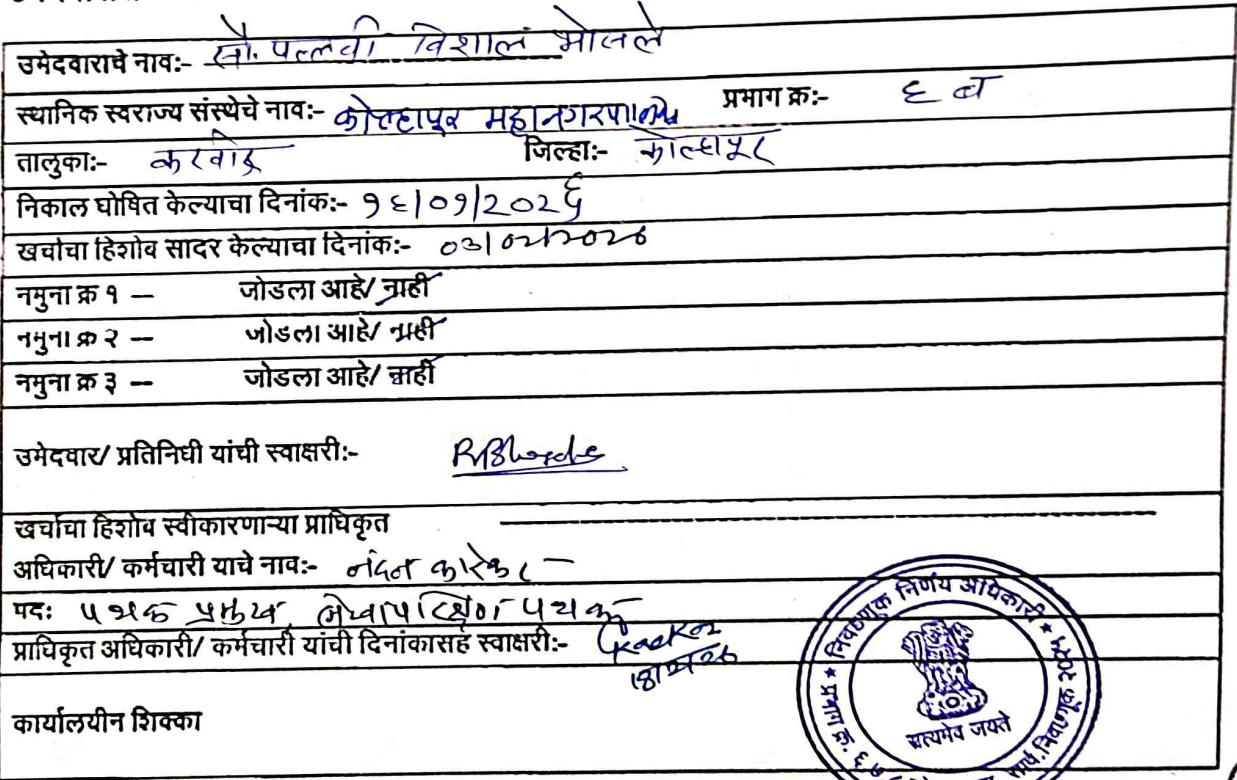 उमेदवाराचे नाव:- सौ. पल्लवी विशाल भोसले
स्थानिक स्वराज्य संस्थेचे नाव:- कोल्हापूर महानगरपालिका प्रभाग क्र:- ६ ब
तालुका:- करवीर जिल्हा:- कोल्हापूर
निकाल घोषित केल्याचा दिनांक:- १६/०१/२०२६
खर्चाचा हिशोब सादर केल्याचा दिनांक:- ०३/०२/२०२६
नमुना क्र १ — जोडला आहे/ नाही
नमुना क्र २ — जोडला आहे/ नाही
नमुना क्र ३ — जोडला आहे/ नाही
उमेदवार/ प्रतिनिधी यांची स्वाक्षरी:-
खर्चाचा हिशोब स्वीकारणाऱ्या प्राधिकृत
अधिकारी/ कर्मचारी याचे नाव:- नंदन कारेकर
पदः पथक प्रमुख, लेखापरिक्षण पथक
प्राधिकृत अधिकारी/ कर्मचारी यांची दिनांकासह स्वाक्षरी:-
कार्यालयीन शिक्का
निवडणूक निर्णय अधिकारी
प्रभाग क्र. ६
सत्यमेव जयते